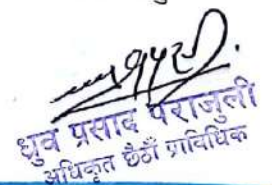 ध्रुव प्रसाद पराजुली
अधिकृत छैठौं प्राविधिक